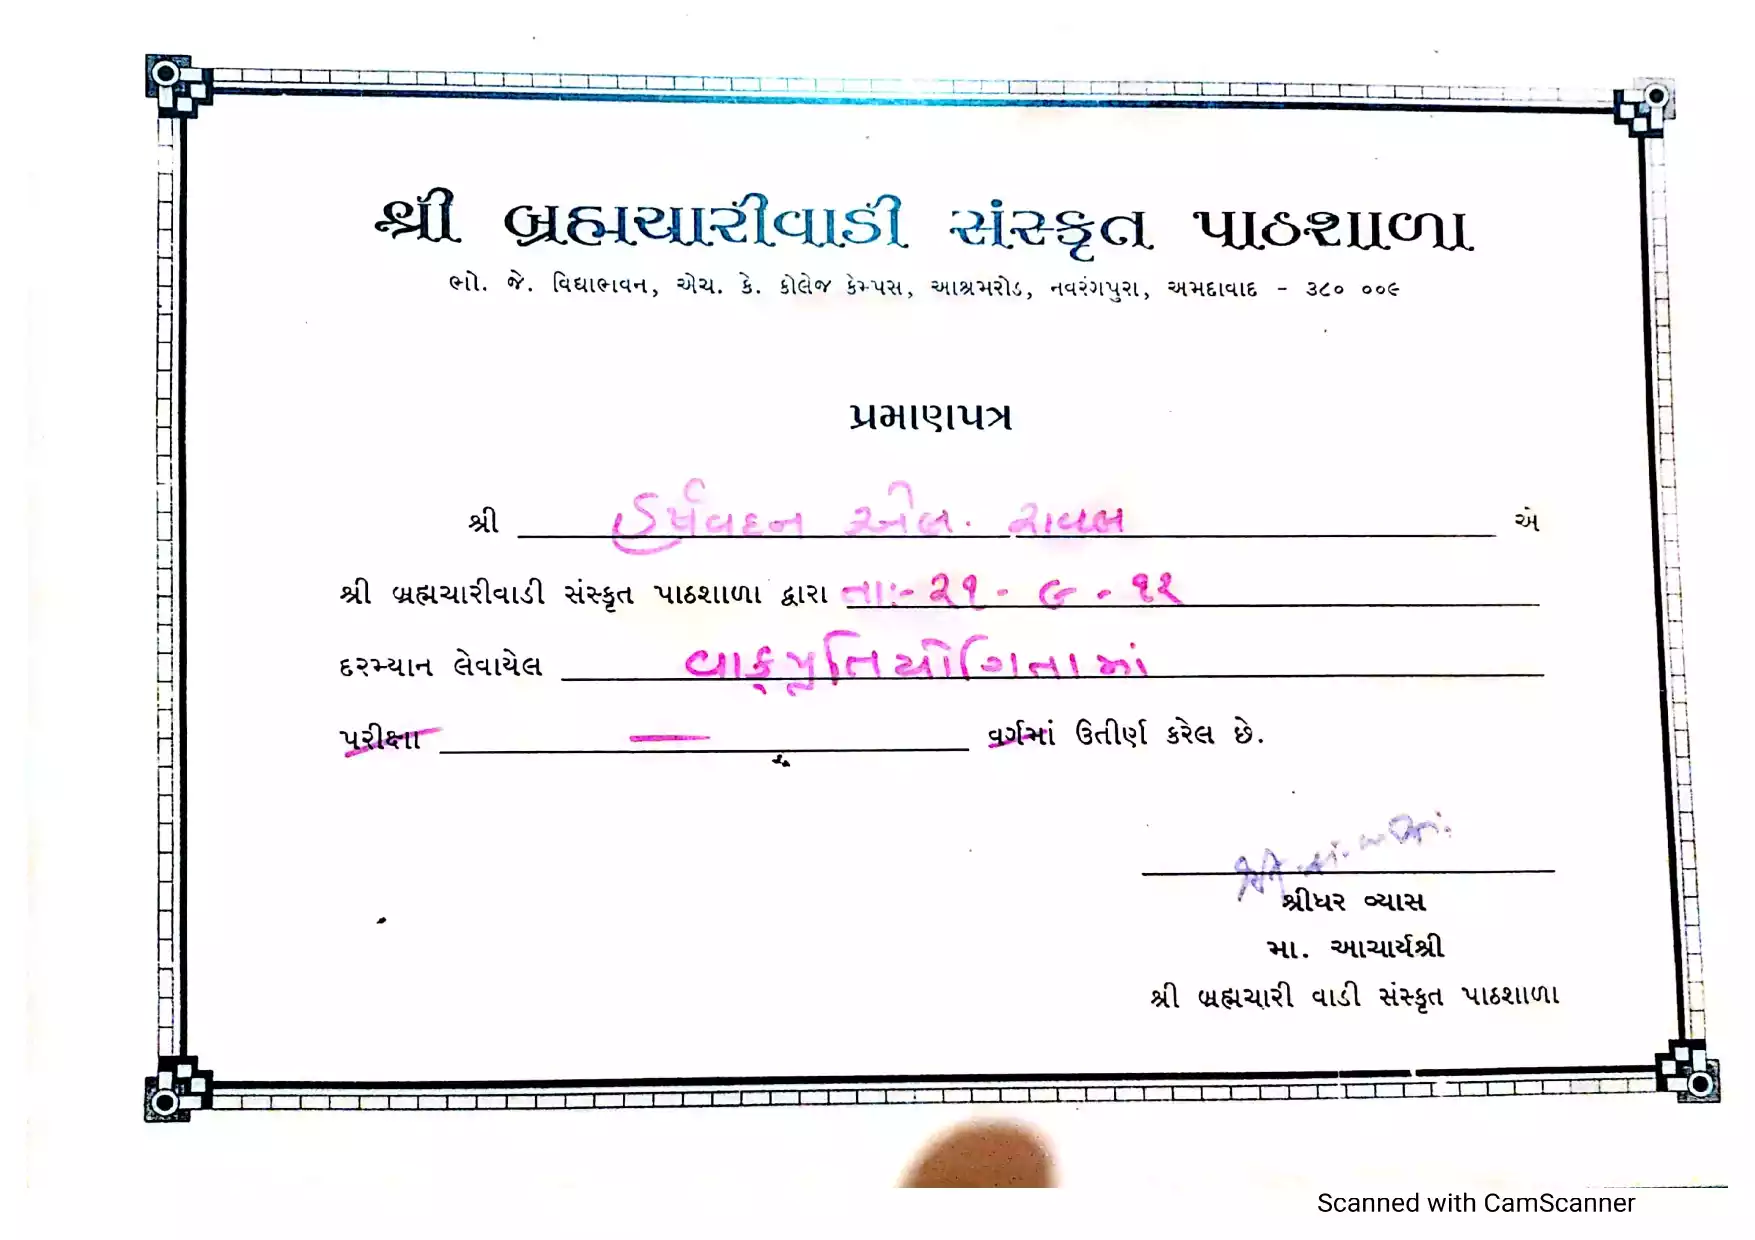 શ્રી બ્રહ્મચારીવાડી સંસ્કૃત પાઠશાળા
ભો. જે. વિદ્યાભવન, એચ. કે. કોલેજ કેમ્પસ, આશ્રમરોડ, નવરંગપુરા, અમદાવાદ - ૩૮૦ ૦૦૯
પ્રમાણપત્ર
શ્રી હર્ષવદન એલ. રાવલ એ
શ્રી બ્રહ્મચારીવાડી સંસ્કૃત પાઠશાળા દ્વારા તા:- ૨૧ - ૯ - ૧૨
દરમ્યાન લેવાયેલ વાક્પ્રતિયોગિતામાં
પરીક્ષા — વર્ગમાં ઉતીર્ણ કરેલ છે.
શ્રીધર વ્યાસ
મા. આચાર્યશ્રી
શ્રી બ્રહ્મચારી વાડી સંસ્કૃત પાઠશાળા
Scanned with CamScanner